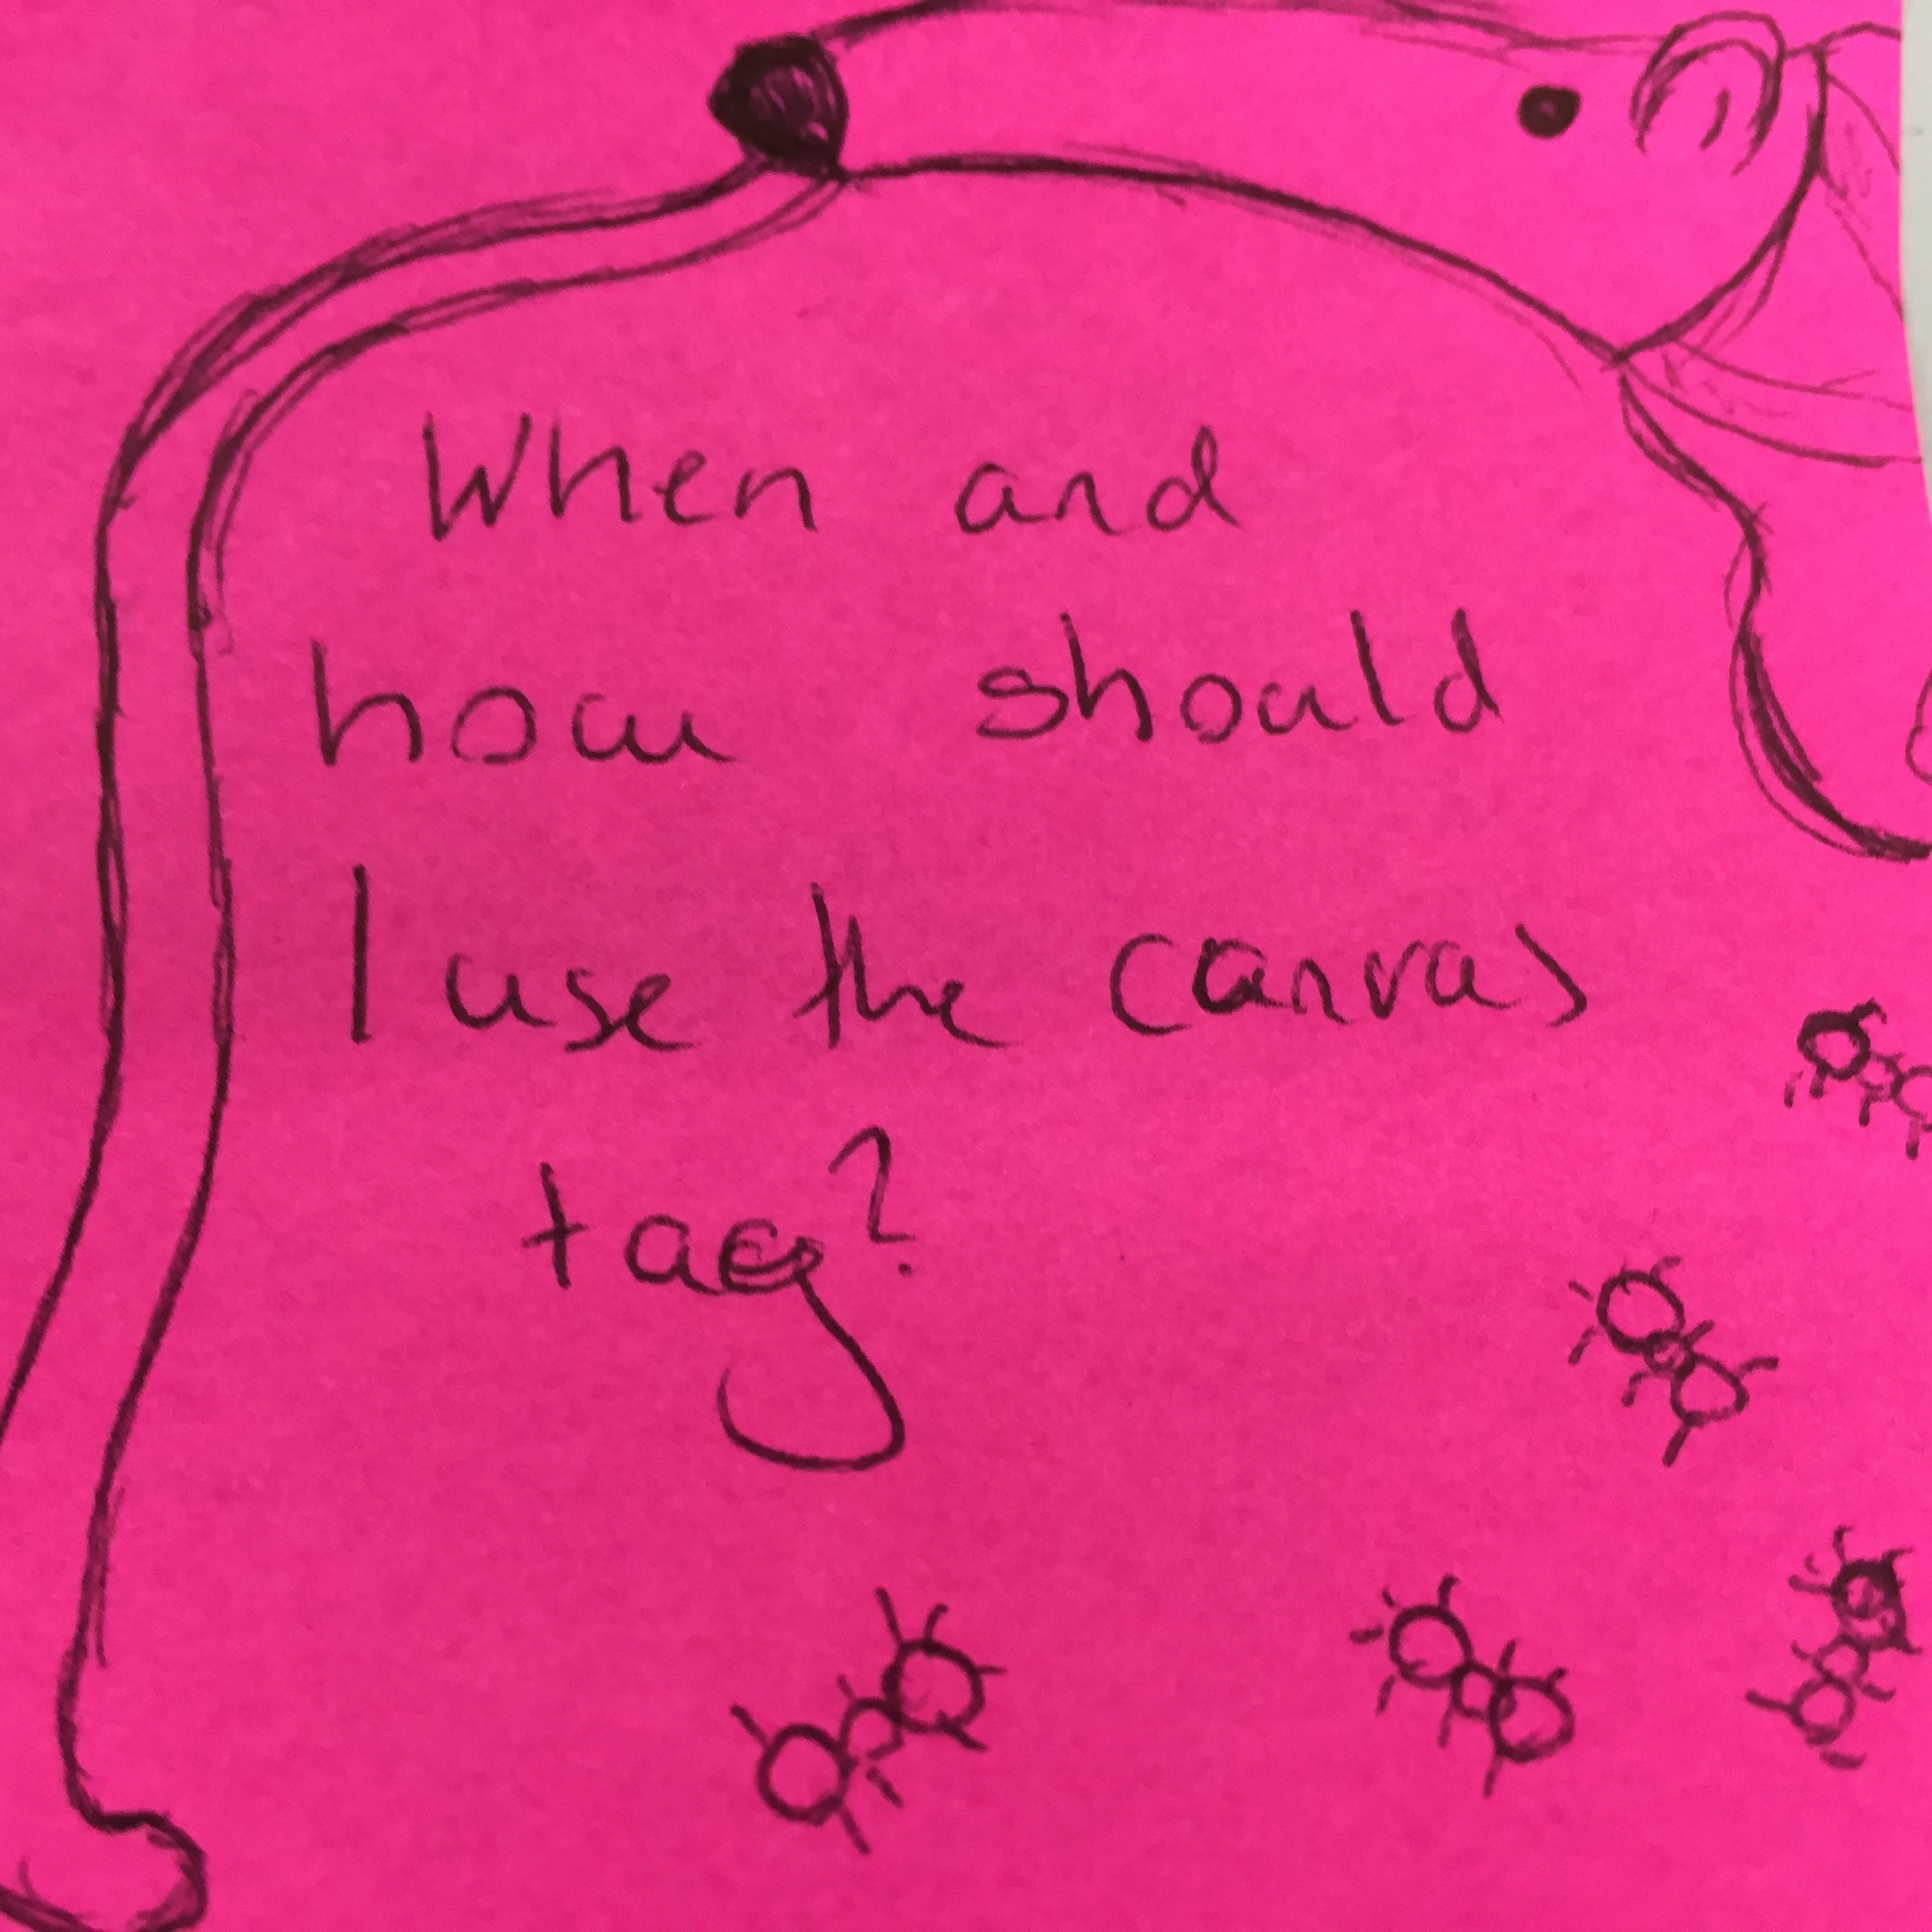 When and
how should
I use the canvas
tag?